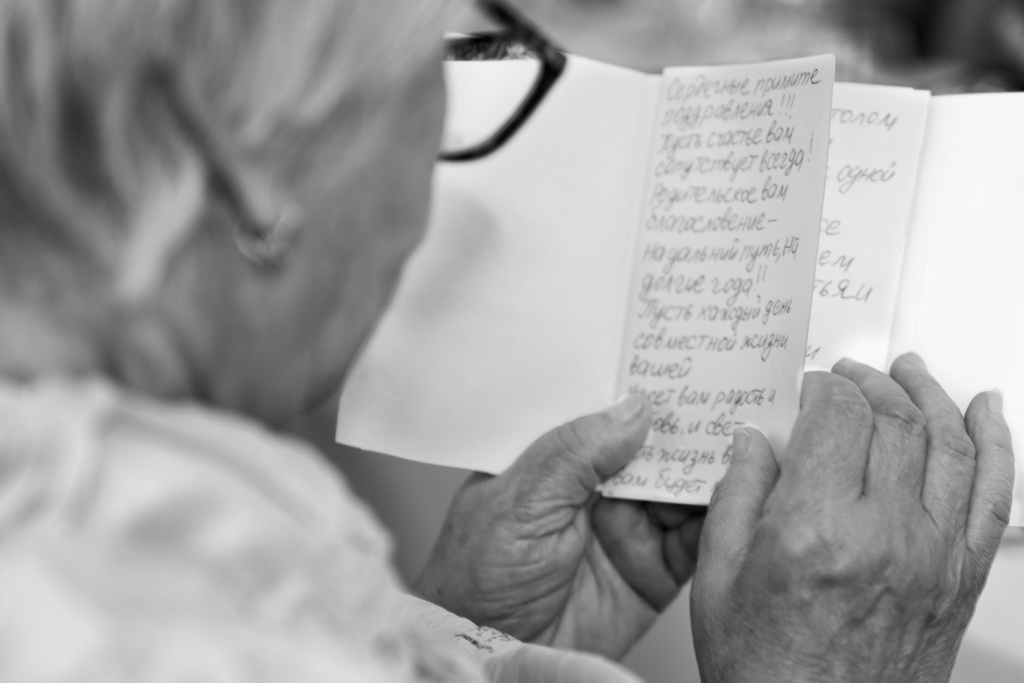 Сердечные примите
поздравления!!!
Пусть счастье вам
сопутствует всегда!
Родительское вам
благословение-
на дальний путь, на
долгие года!!
Пусть каждый день
совместной жизни
вашей
вам радость и
и свет
жизнь
вам будет
толом
одной